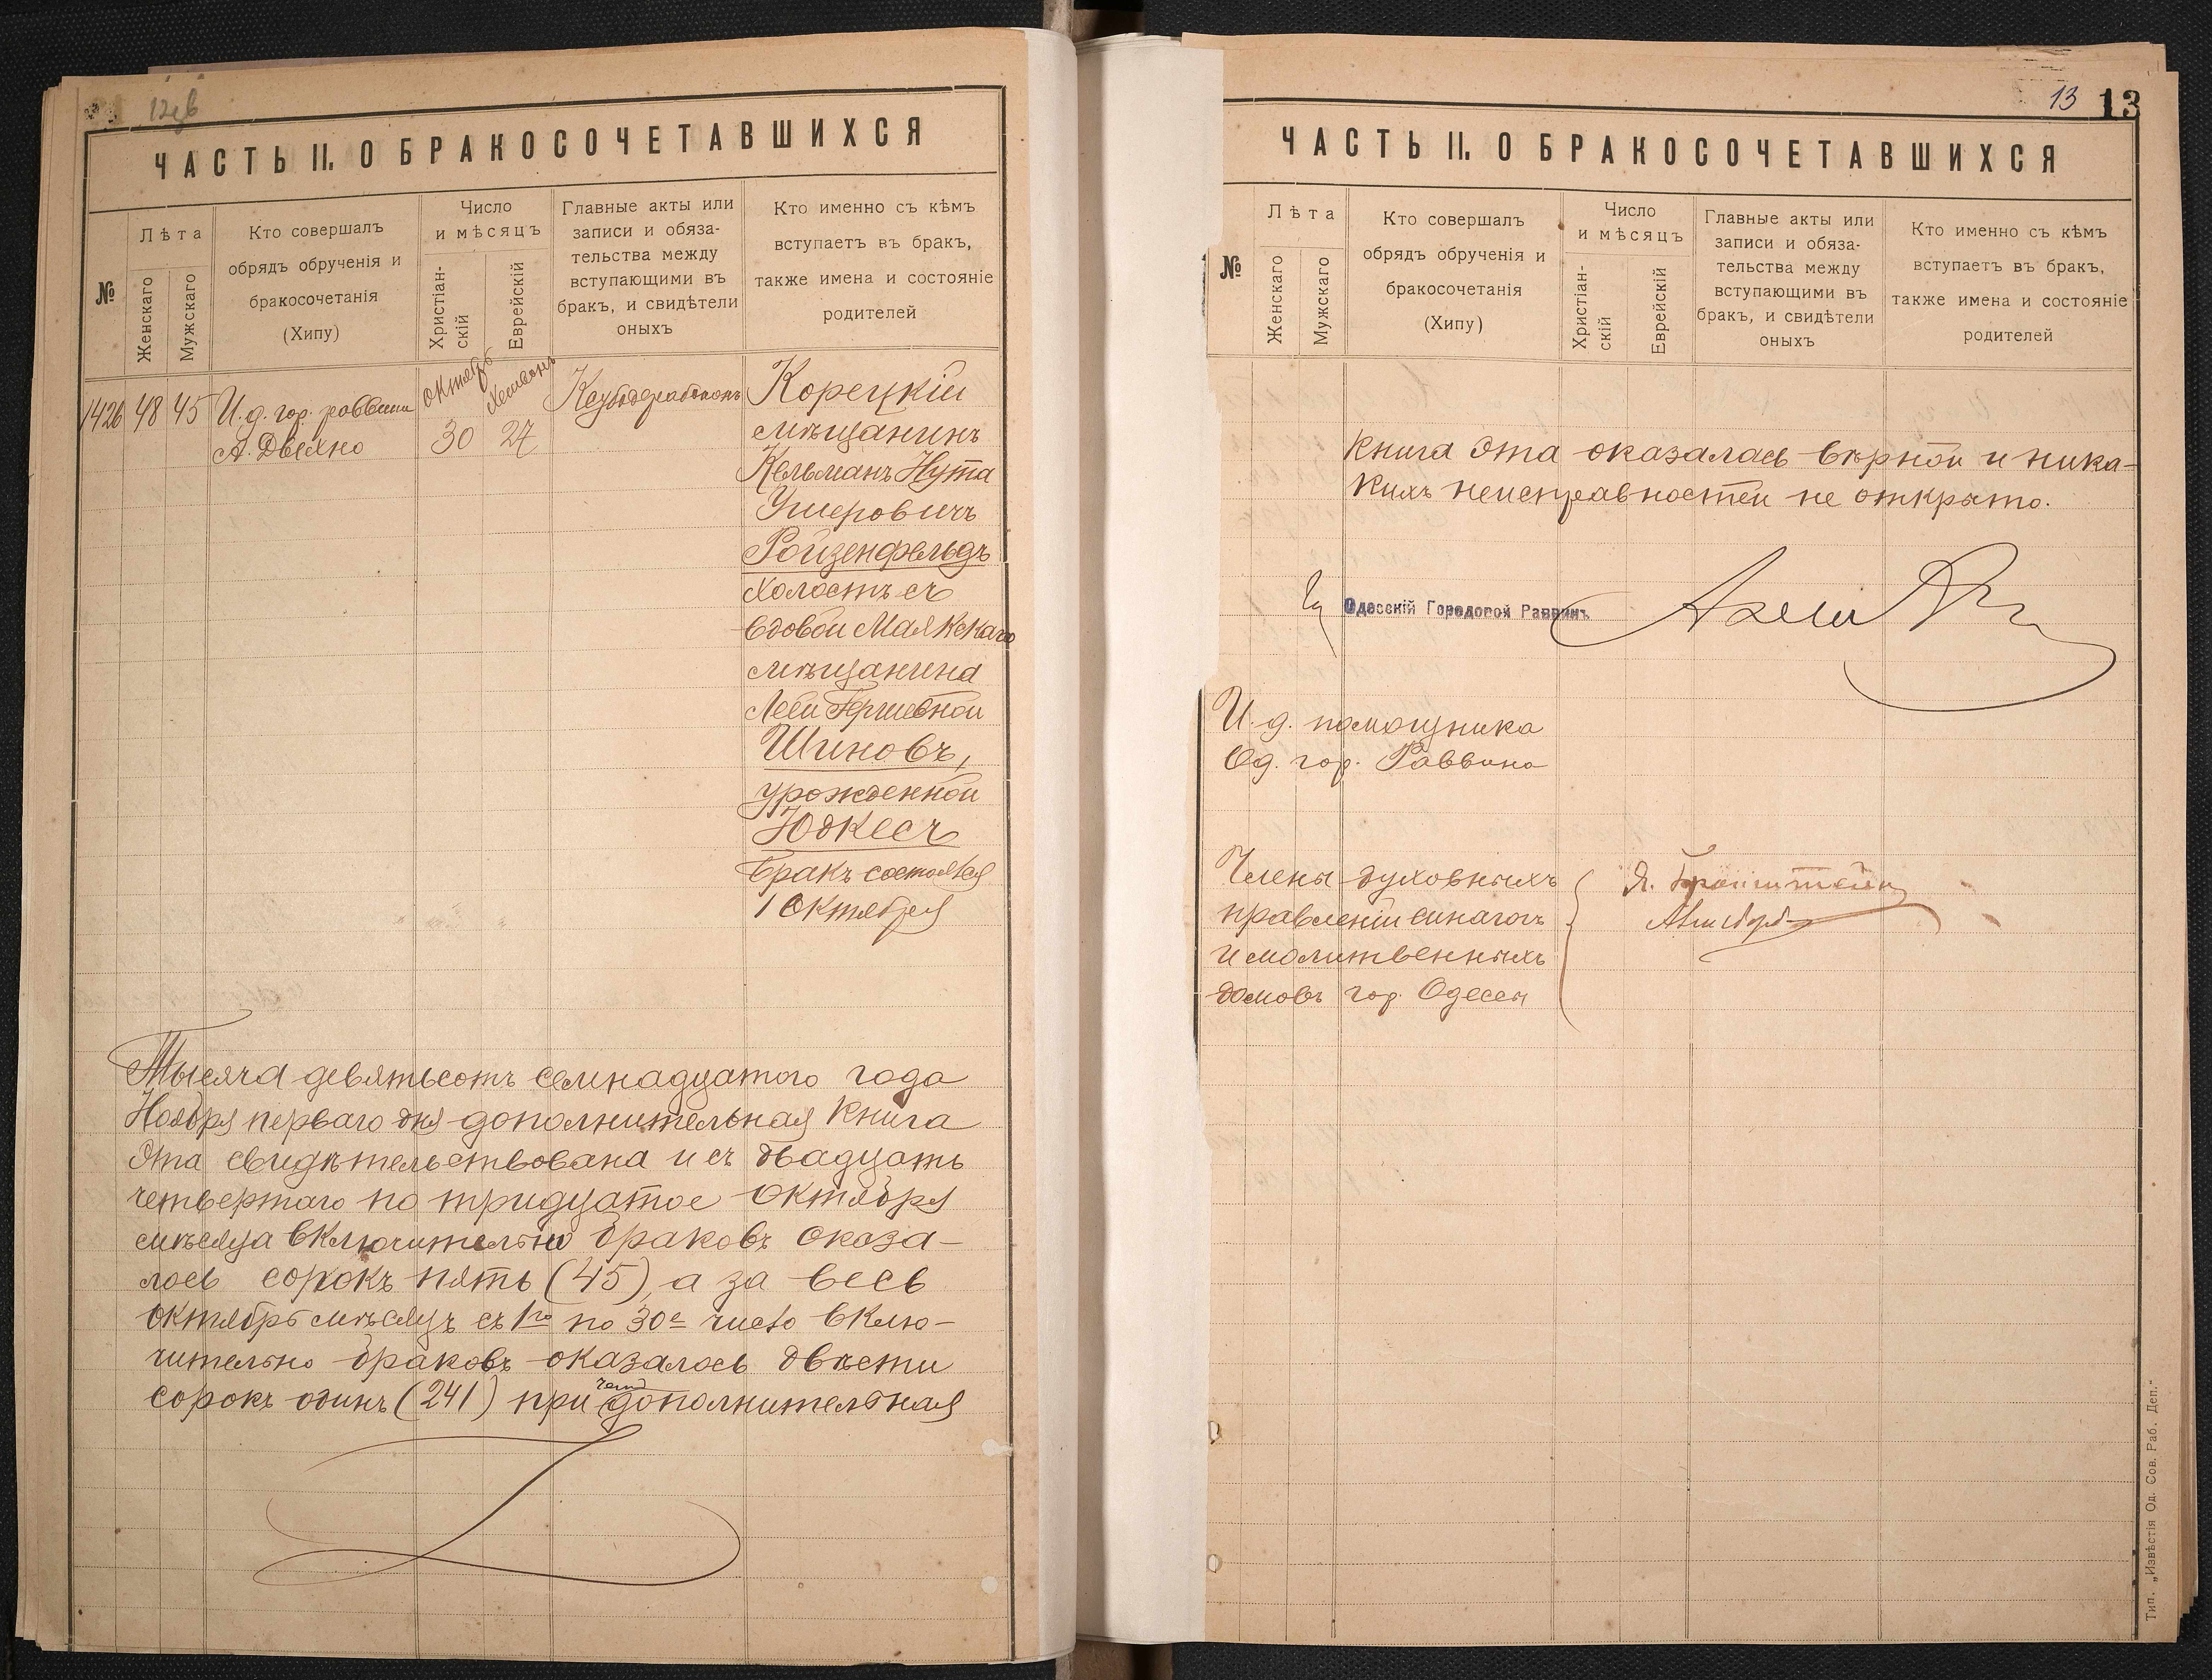 ЧАСТЬ II. О БРАКОСОЧЕТАВШИХСЯ
№
Лѣта
Женскаго
Мужскаго
Кто совершалъ
обрядъ обрученія и
бракосочетанія
(Хипу)
Число
и мѣсяцъ
Христіан-
скій
Еврейскій
Главные акты или
записи и обяза-
тельства между
вступающими въ
бракъ, и свидѣтели
оныхъ
Кто именно съ кѣмъ
вступаетъ въ бракъ,
также имена и состояніе
родителей
1426
48
45
И. д. гор. раввина
А. Двейно
октябрь
30
Хешванъ
27
Корецкій
мѣщанинъ
Кельманъ Нута
Ушеровичъ
Ройзенфельдъ
холостъ съ
вдовой Маякскаго
мѣщанина
Леей Гершевной
Шиновъ,
урожденной
Юдкесъ
Бракъ состоялся
1 Октября
Тысяча девятьсотъ семнадцатого года
Ноября перваго дня дополнительная книга
эта свидѣтельствована и съ двадцать
четвертаго по тридцатое Октября
мѣсяца включительно браковъ оказа-
лось сорокъ пять (45), а за весь
октябрь мѣсяцъ съ 1го по 30е число вклю-
чительно браковъ оказалось двѣсти
сорокъ одинъ (241) при чемъ дополнительная
13 13
ЧАСТЬ II. О БРАКОСОЧЕТАВШИХСЯ
№
Лѣта
Женскаго
Мужскаго
Кто совершалъ
обрядъ обрученія и
бракосочетанія
(Хипу)
Число
и мѣсяцъ
Христіан-
скій
Еврейскій
Главные акты или
записи и обяза-
тельства между
вступающими въ
бракъ, и свидѣтели
оныхъ
Кто именно съ кѣмъ
вступаетъ въ бракъ,
также имена и состояніе
родителей
книга эта оказалась вѣрной и ника-
кихъ неисправностей не открыто.
Одесскій Городовой Раввинъ
И. д. помощника
Од. гор. Раввина
Члены духовныхъ
правленій синагогъ
и молитвенныхъ
домовъ гор. Одессы
Я. Бронштейн
Тип. „Извѣстія Од. Сов. Раб. Деп."